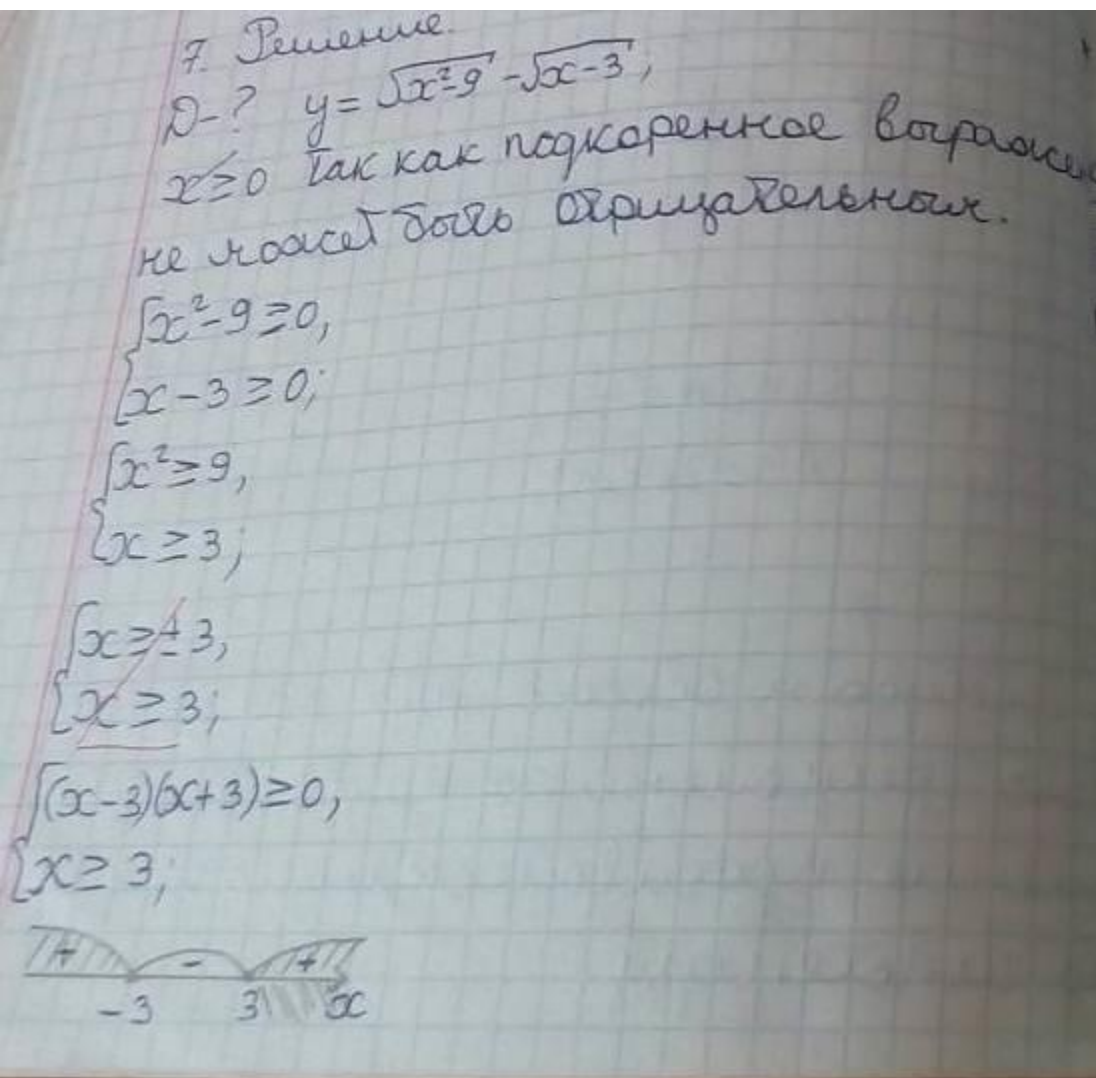 7. Решение.
D-? y = √x²-9 - √x-3,
x ≥ 0 так как подкоренное выраже
не может быть отрицательным.
{x² - 9 ≥ 0,
{x - 3 ≥ 0;
{x² ≥ 9,
{x ≥ 3;
{x ≥ ± 3,
{x ≥ 3;
{(x-3)(x+3) ≥ 0,
{x ≥ 3;
+ - +
-3 3 x